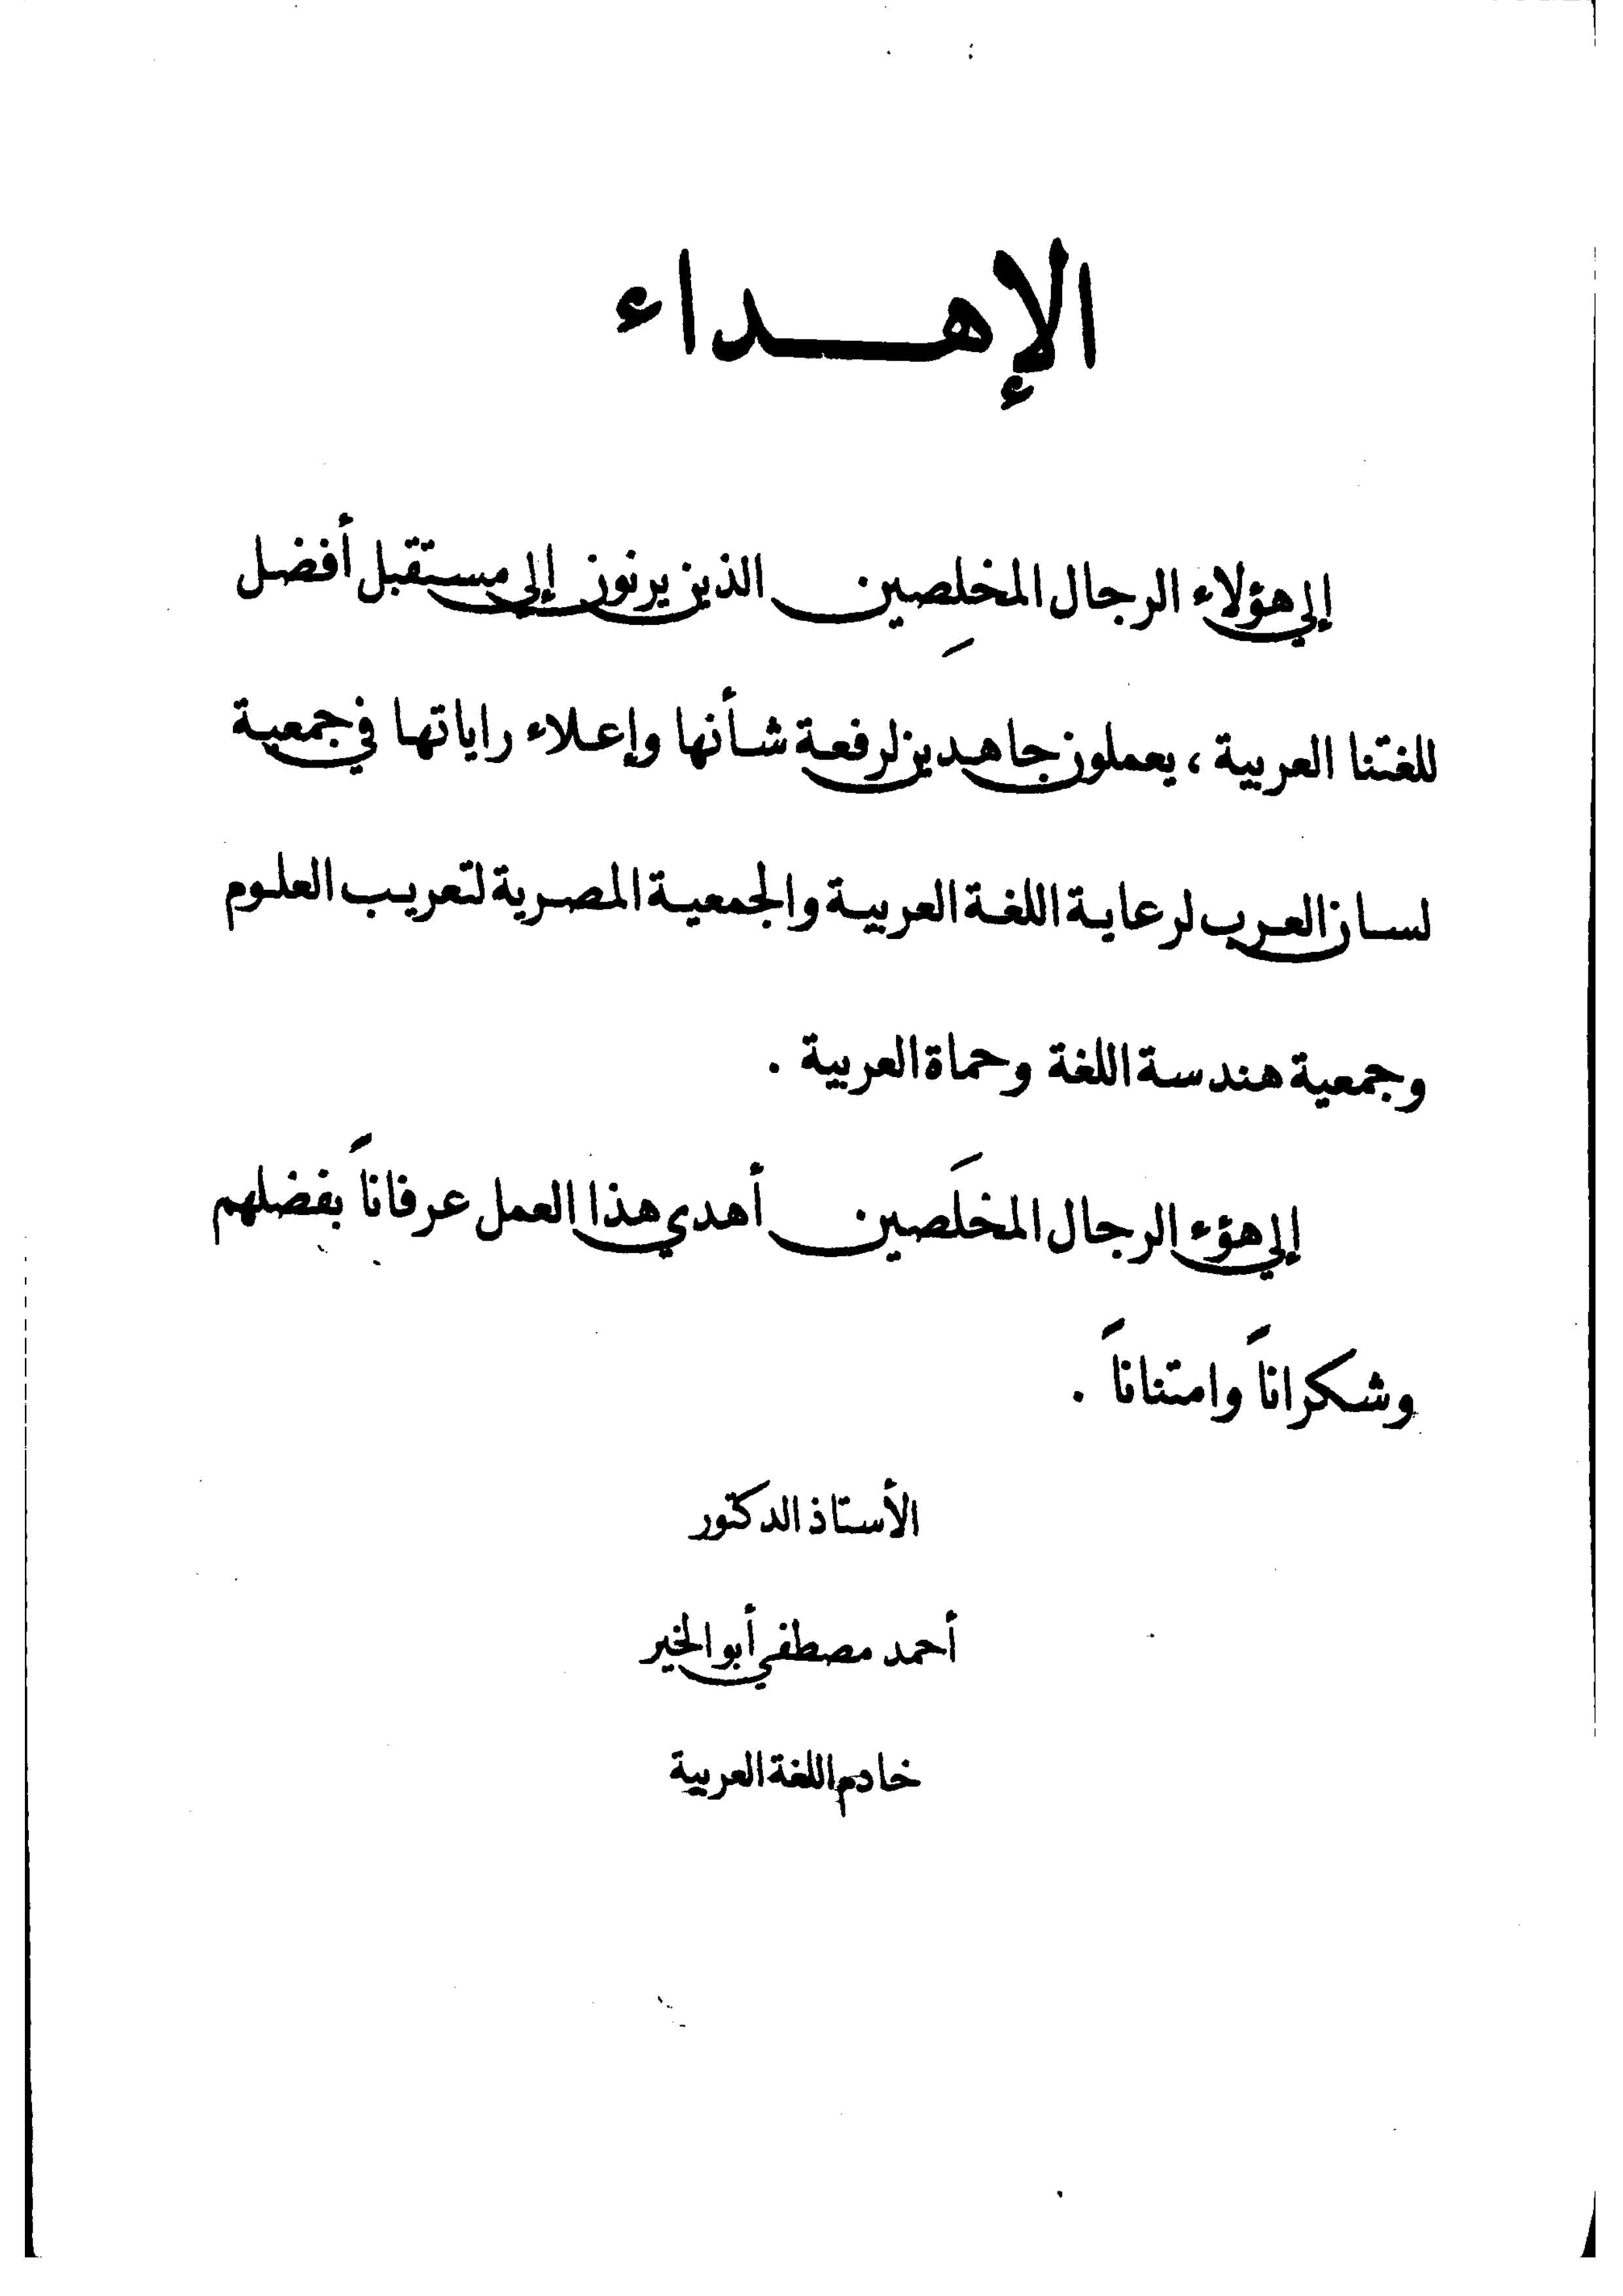 الإهداء
إلى هؤلاء الرجال المخلِصين الذين يرنون إلى مستقبل أفضل
للغتنا العربية ، يعملون جاهدين لرفعة شأنها وإعلاء راياتها في جمعية
لسان العرب لرعاية اللغة العربية والجمعية المصرية لتعريب العلوم
وجمعية هندسة اللغة وحماة العربية .
إلى هؤء الرجال المخلَصين أهدي هذا العمل عرفاناً بفضلهم
وشكراناً وامتناناً .
الأستاذ الدكتور
أحمد مصطفى أبو الخير
خادم اللغة العربية